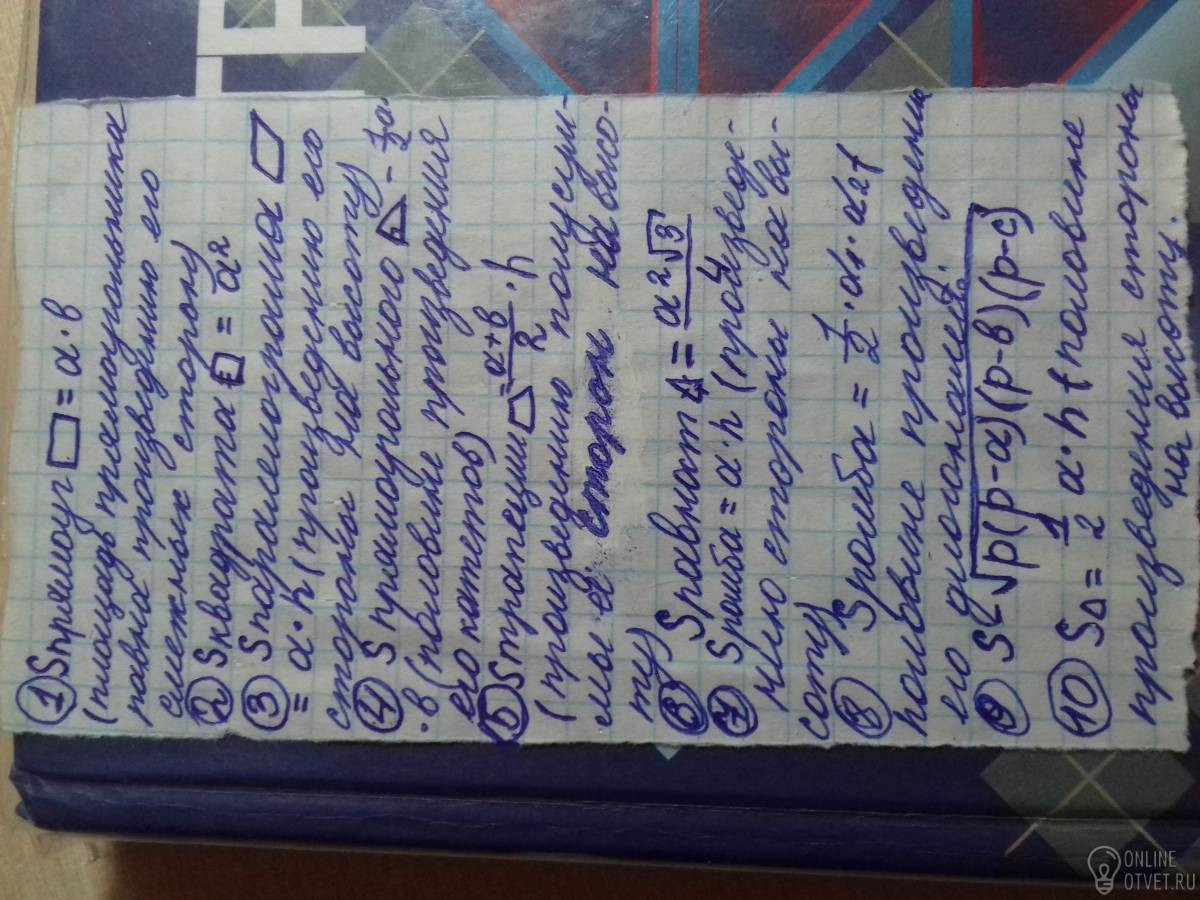 ТР
① Sпрямоуг ▭ = a · в
(площадь прямоугольника
равна произведению его
смежных сторон)
② Sквадрата □ = a²
③ Sпараллелограма ▱
= a · h (произведению его
стороны на высоту)
④ S прямоугольного ◺ - 1/2 a·
· в (половине произведения
его катетов)
⑤ Sтрапеции = a+в/2 · h
(произведению полусум-
мы её сторон на высо-
ту)
⑥ S равност Δ = a²√3/4
⑦ Sромба = a · h (произведе-
нию стороны на вы-
соту)
⑧ Sромба = 1/2 · d₁ · d₂ (
половине произведения
его диагоналей)
⑨ S = √p(p-a)(p-в)(p-c)
⑩ SΔ = 1/2 a · h (половине
произведения стороны
на высоту.
ONLINE
OTVET.RU